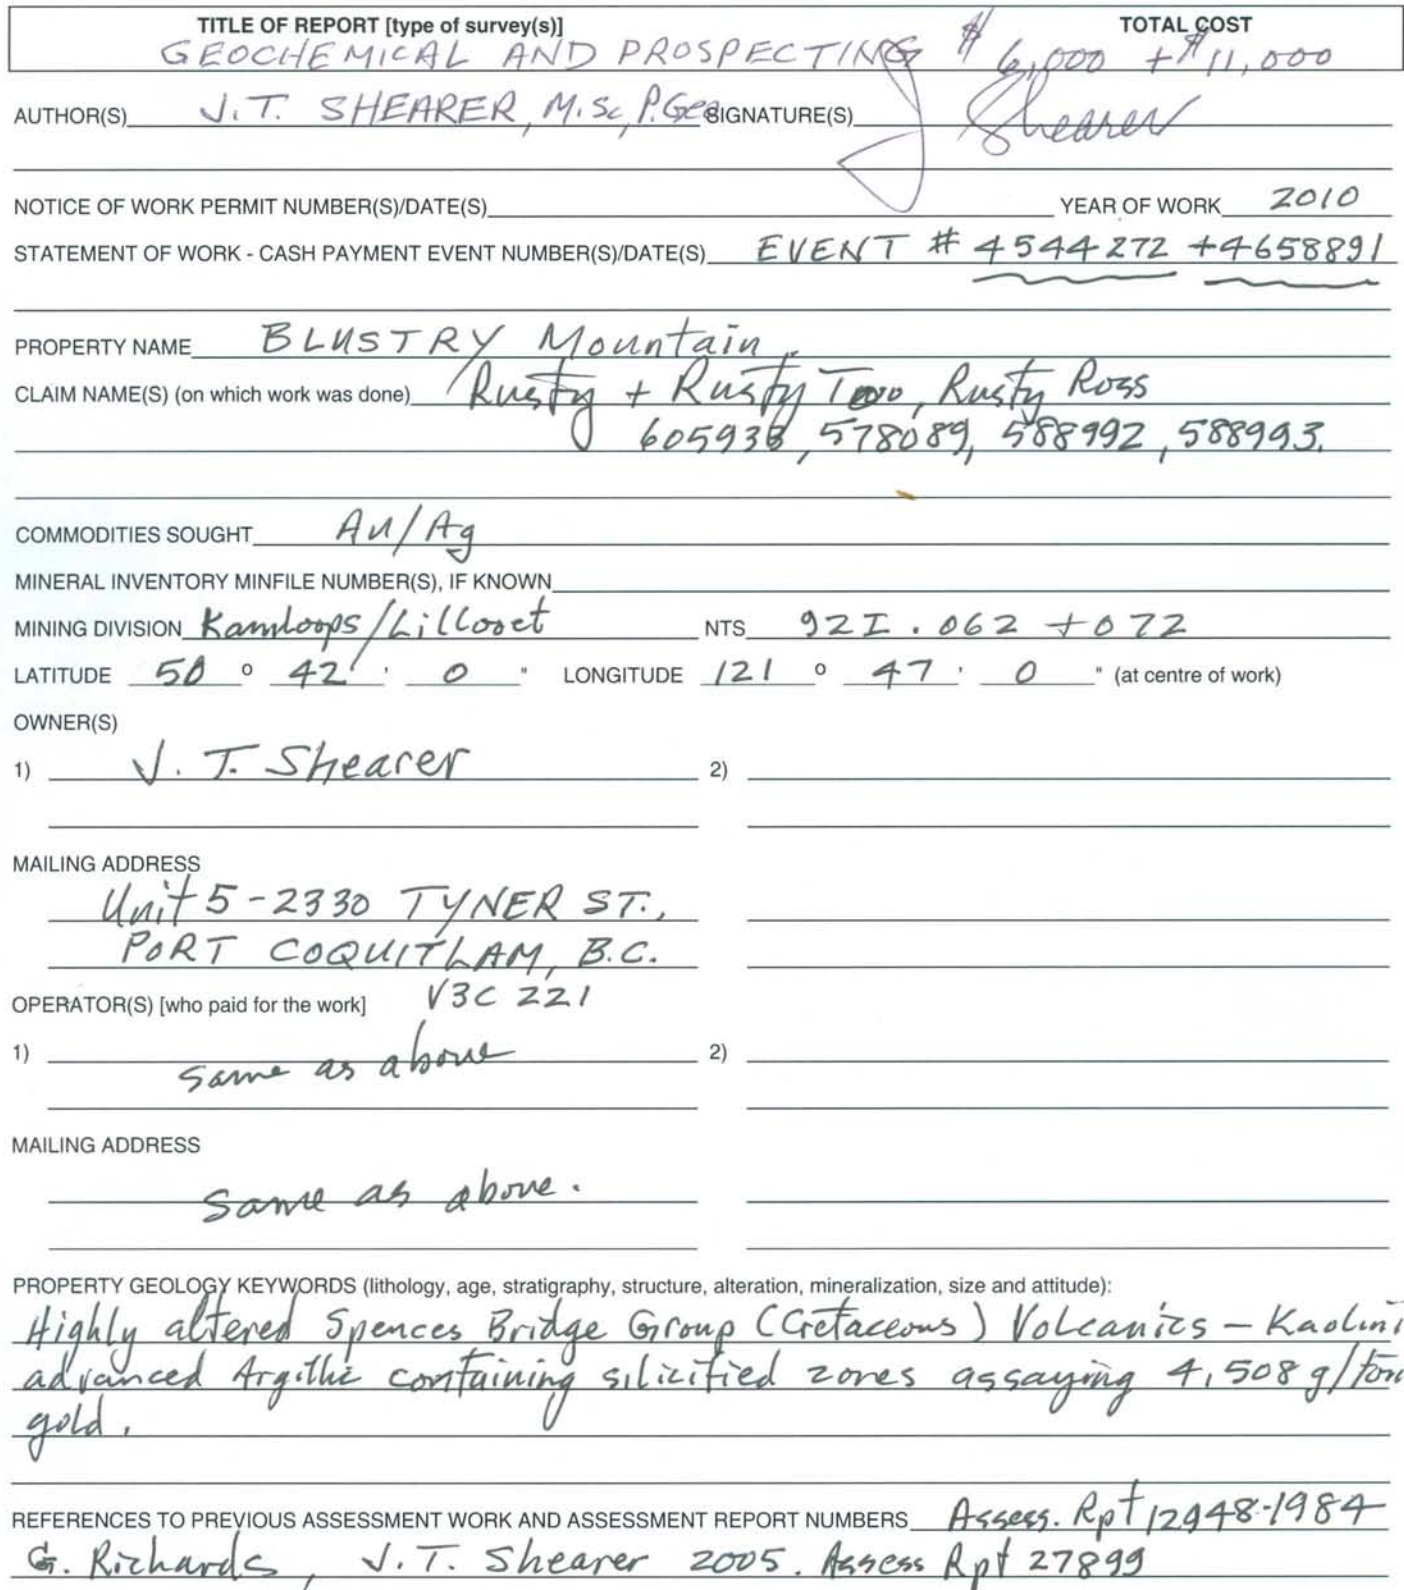 TITLE OF REPORT [type of survey(s)] TOTAL COST
GEOCHEMICAL AND PROSPECTING $ 6,000 + $11,000
AUTHOR(S) J.T. SHEARER, M.Sc, P.Geo SIGNATURE(S) J Shearer
NOTICE OF WORK PERMIT NUMBER(S)/DATE(S) YEAR OF WORK 2010
STATEMENT OF WORK - CASH PAYMENT EVENT NUMBER(S)/DATE(S) EVENT # 4544272 + 4658891
PROPERTY NAME BLUSTRY Mountain
CLAIM NAME(S) (on which work was done) Rusty + Rusty Two, Rusty Ross
578089, 588992, 588993.
COMMODITIES SOUGHT Au/Ag
MINERAL INVENTORY MINFILE NUMBER(S), IF KNOWN
MINING DIVISION Kamloops/Lillooet NTS 92I.062 + 072
LATITUDE 50 ° 42 ' 0 " LONGITUDE 121 ° 47 ' 0 " (at centre of work)
OWNER(S)
1) J. T. Shearer 2)
MAILING ADDRESS
Unit 5-2330 TYNER ST.,
PORT COQUITLAM, B.C.
OPERATOR(S) [who paid for the work] V3C 2Z1
1) same as above 2)
MAILING ADDRESS
same as above.
PROPERTY GEOLOGY KEYWORDS (lithology, age, stratigraphy, structure, alteration, mineralization, size and attitude):
Highly altered Spences Bridge Group (Cretaceous) Volcanics - Kaolini
advanced Argillic containing silicified zones assaying 4.508 g/ton
gold.
REFERENCES TO PREVIOUS ASSESSMENT WORK AND ASSESSMENT REPORT NUMBERS Assess. Rpt 12948-1984
G. Richards, J.T. Shearer 2005. Assess Rpt 27899